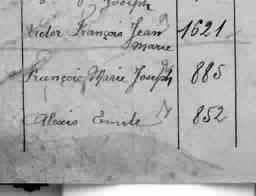 Joseph
Victor François Jean 1621
Marie
François Marie Joseph 885
Alexis Emile 852